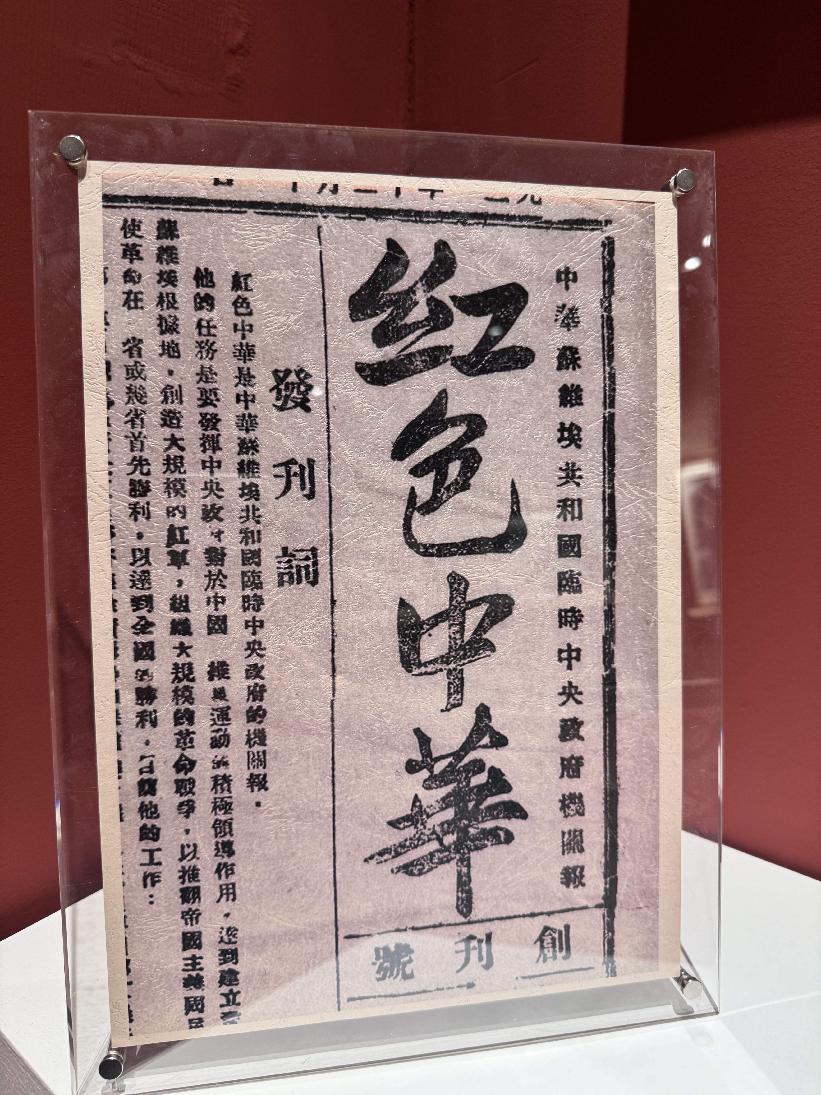 中華蘇維埃共和國臨時中央政府機關報
红色中華
創刊號
發刊詞
紅色中華是中華蘇維埃共和國臨時中央政府的機關報。
他的任務是要發揮中央政 對於中國 維 運動的積極領導作用，達到建立
蘇維埃根據地，創造大規模的紅軍，組織大規模的革命戰爭，以推翻帝國主義國民
使革命在 省或幾省首先勝利，以達到全國的勝利， 他的工作：